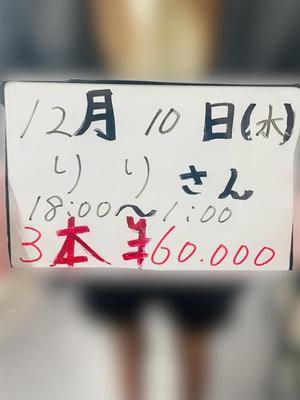 12月 10 日(水)
りり さん
18:00〜1:00
3本 ¥60.000